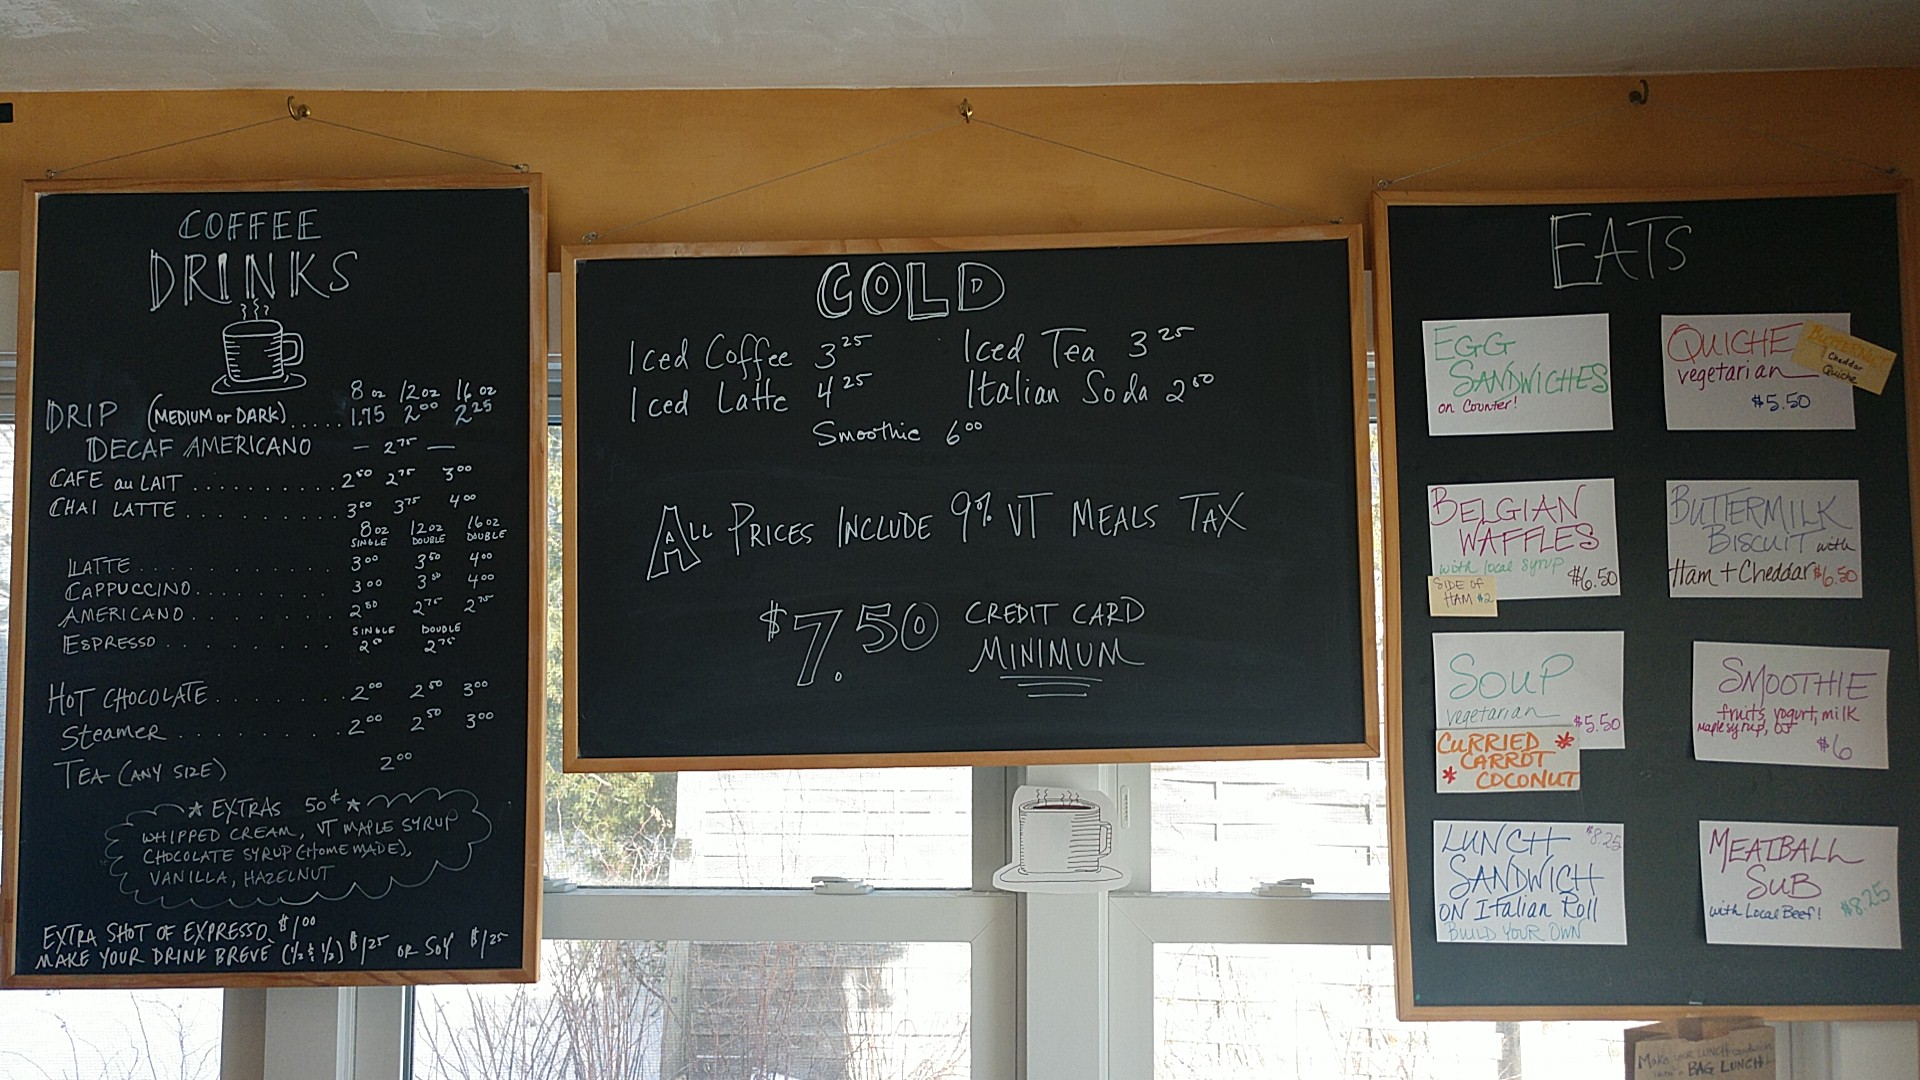 COFFEE
DRINKS
8 oz 12 oz 16 oz
DRIP (MEDIUM or DARK)..... 1.75 2⁰⁰ 2²⁵
DECAF AMERICANO — 2⁷⁵ —
CAFE au LAIT .......... 2⁵⁰ 2⁷⁵ 3⁰⁰
CHAI LATTE .......... 3⁵⁰ 3⁷⁵ 4⁰⁰
8 oz 12 oz 16 oz
SINGLE DOUBLE DOUBLE
LATTE .......... 3⁰⁰ 3⁵⁰ 4⁰⁰
CAPPUCCINO .......... 3⁰⁰ 3⁵⁰ 4⁰⁰
AMERICANO .......... 2⁵⁰ 2⁷⁵ 2⁷⁵
SINGLE DOUBLE
ESPRESSO .......... 2⁵⁰ 2⁷⁵
HOT CHOCOLATE ........ 2⁰⁰ 2⁵⁰ 3⁰⁰
Steamer .......... 2⁰⁰ 2⁵⁰ 3⁰⁰
TEA (ANY SIZE) 2⁰⁰
* EXTRAS 50¢ *
WHIPPED CREAM, VT MAPLE SYRUP
CHOCOLATE SYRUP (HOMEMADE),
VANILLA, HAZELNUT
EXTRA SHOT OF EXPRESSO $1⁰⁰
MAKE YOUR DRINK BREVE (½ & ½) $1²⁵ OR SOY $1²⁵
COLD
Iced Coffee 3²⁵ Iced Tea 3²⁵
Iced Latte 4²⁵ Italian Soda 2⁵⁰
Smoothie 6⁰⁰
ALL PRICES INCLUDE 9% VT MEALS TAX
$7.50 CREDIT CARD
MINIMUM
EATS
EGG
SANDWICHES
on Counter!
QUICHE
vegetarian
$5.50
BUTTERNUT
Cheddar
Quiche
BELGIAN
WAFFLES
with local syrup $6.50
SIDE OF
HAM $2
BUTTERMILK
BISCUIT with
Ham + Cheddar $6.50
SOUP
vegetarian $5.50
CURRIED *
CARROT
* COCONUT
SMOOTHIE
fruits, yogurt, milk
maple syrup, OJ
$6
LUNCH $8.25
SANDWICH
ON Italian Roll
BUILD YOUR OWN
MEATBALL
SUB
with Local Beef! $8.25
Make your LUNCH sandwich
into a BAG LUNCH